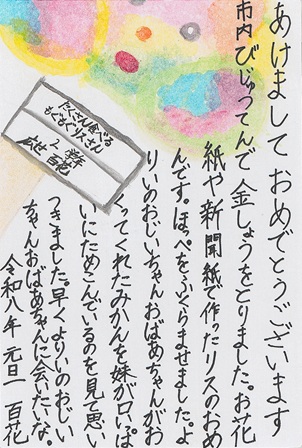 あけまして おめでとうございます
市内びじゅつてんで金しょうをとりました。お花
紙や新聞紙で作ったリスのおめ
んです。ほっぺをふくらませました。よ
りいのおじいちゃんおばあちゃんがお
くってくれたみかんを妹が口いっぱ
いにためこんでいるのを見て思い
つきました。早くよりいのおじい
ちゃんおばあちゃんに会いたいな。
令和八年 元旦 百花
たくさん食べる
もぐもぐリスさん
百花